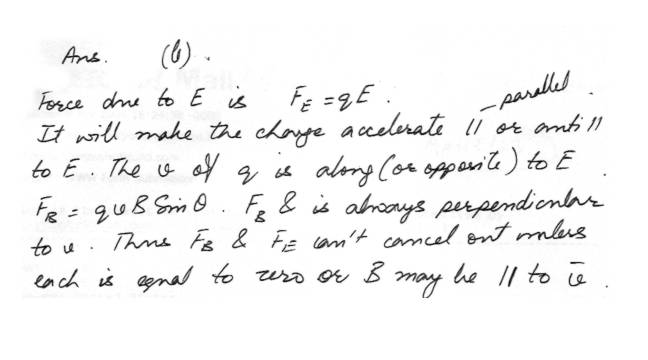 Ans. (b).
Force due to E is F_E = qE. parallel.
It will make the charge accelerate || or anti ||
to E. The v of q is along (or opposite) to E.
F_B = qvB Sin θ. F_B & is always perpendicular
to v. Thus F_B & F_E can't cancel out unless
each is equal to zero or B may be || to v̄.